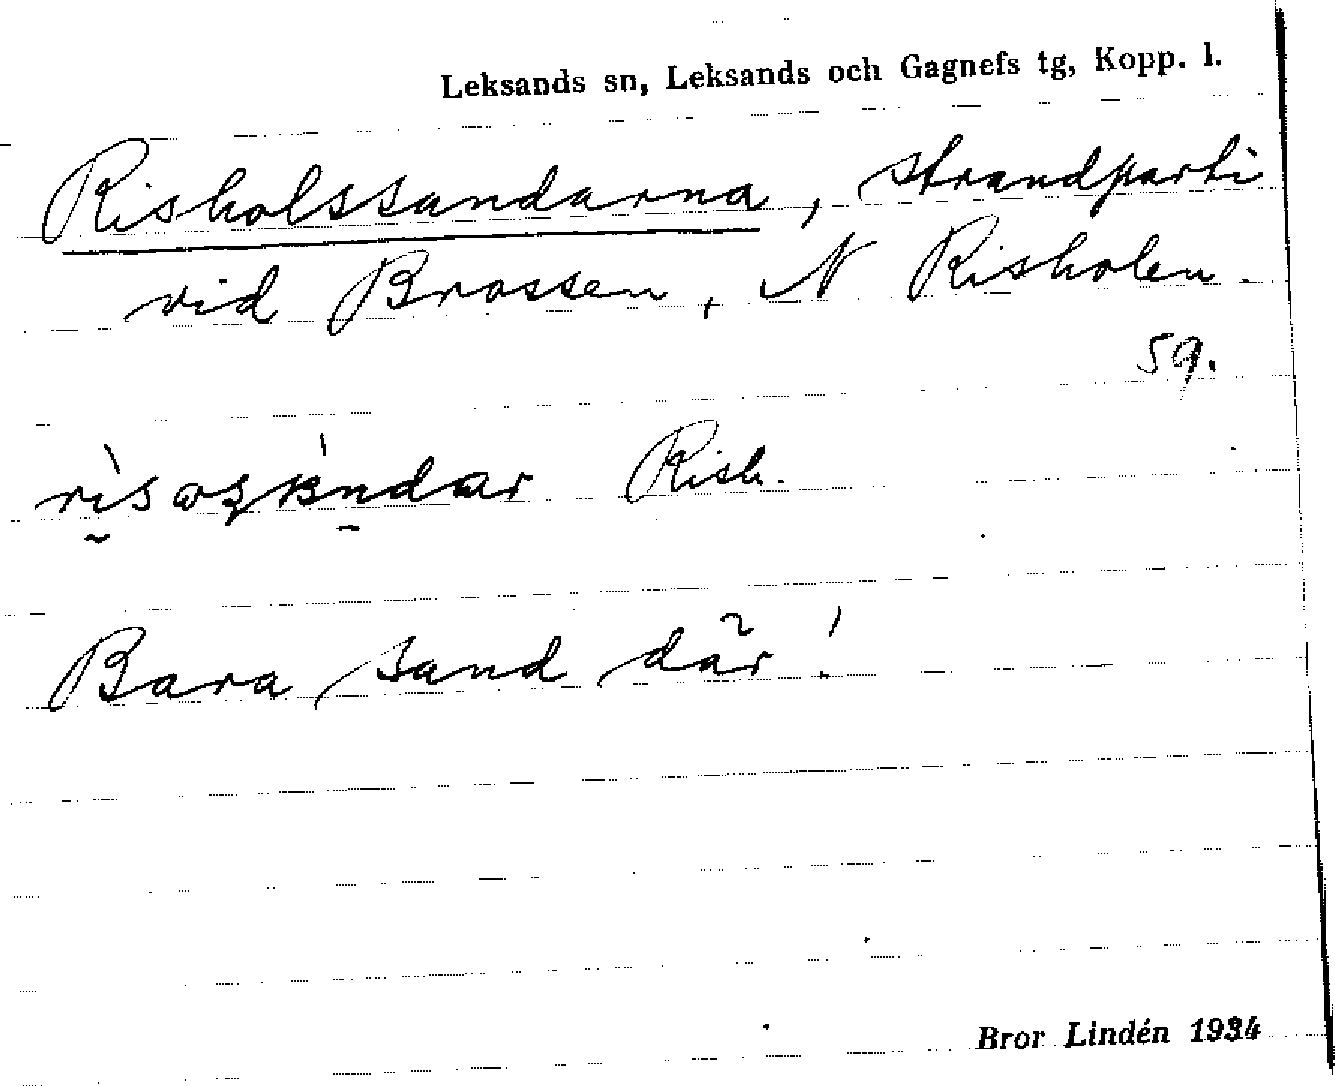 Leksands sn, Leksands och Gagnefs tg, Kopp. l.
Risholssandarna, strandparti
vid Brossen, N Risholen.
59.
Rish.
Bara sand där!
Bror Lindén 1934